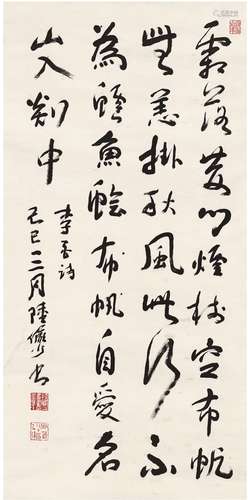 霜落荆門煙樹空布帆
無恙掛秋風此行不
為鱸魚鱠布帆自愛名
山入剡中
李白詩
己巳三月陸儼少書